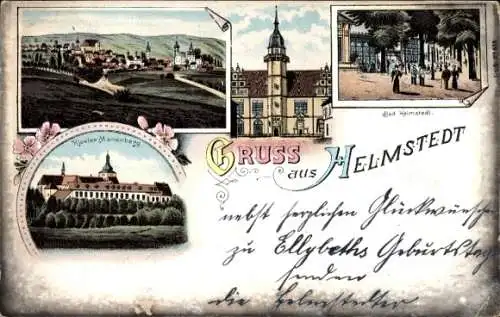 Bad Helmstedt.
Kloster Marienberg
GRUSS
aus HELMSTEDT
nebst herzlichen Glückwünschen
zu Ellybeths Geburtstag
senden
die Helmstedter